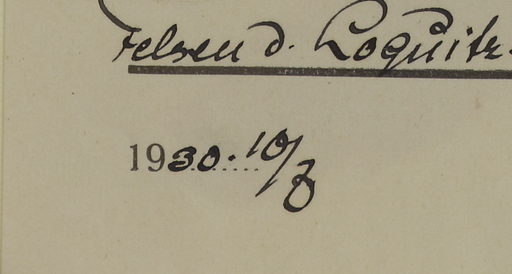 Felsen d. Loquitz.
1930. 10/7